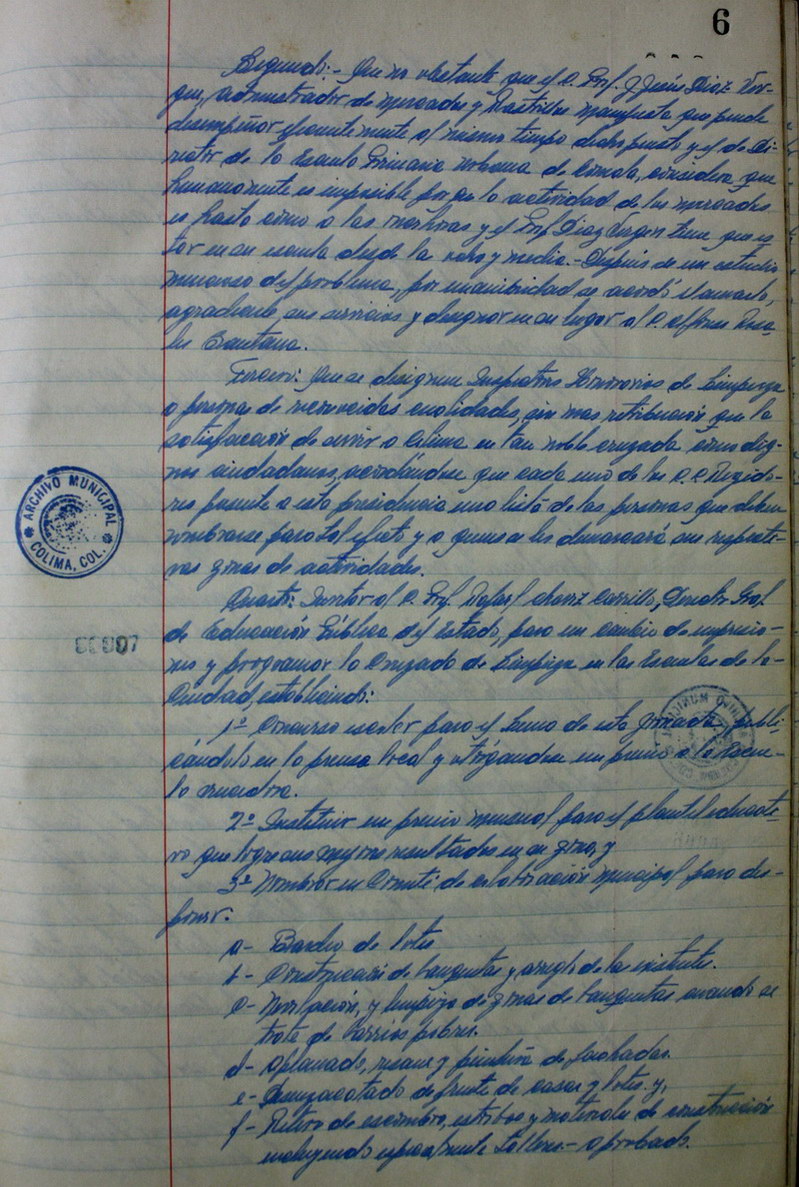 6
Segundo:- Que no obstante que el C. Prof. J. Jesús Díaz Vir-
gen, administrador de mercados y Rastrillos manifiesta que puede
desempeñar eficientemente al mismo tiempo dicho puesto y el de Di-
rector de la Escuela Primaria Urbana de Comala, considera que
humanamente es imposible porque la actividad de los mercados
es hasta como a las horas y el Prof. Díaz Virgen tiene que es-
tar en su escuela desde la ocho y media.- Después de un estudio
minucioso del problema, por unanimidad se acordó llamarlo,
agradecerle sus servicios y designar en su lugar al C. Alfonso Rosa-
les Santana.
Tercero: Que se designen Inspectores Honorarios de Limpieza
a personas de reconocidas cualidades, sin mas retribución que la
satisfacción de servir a Colima en tan noble cruzada como dig-
nos ciudadanos, acordándose que cada uno de los C.C. Regido-
res presente a esta presidencia una lista de las personas que deben
nombrarse para tal efecto y a quienes se les demarcará sus respecti-
vas zonas de actividades.
Cuarto: Invitar al C. Prof. Rafael Chávez Carrillo, Director Gral.
de Educación Pública del Estado, para un cambio de impresio-
nes y programar la Cruzada de Limpieza en las Escuelas de la
Ciudad, estableciendo:
1º Concurso escolar para el Lema de esta Jornada, publi-
cándolo en la prensa local y otorgandose un premio a la Escue-
la creadora.
2º Instituir un premio mensual para el plantel educati-
vo que logre sus mejores resultados en su zona, y
3º Nombrar un Comité de colaboración municipal para de-
finir.
a- Bardeo de lotes
b- Construcción de banquetas y arreglo de las existentes.
c- Nivelación, y limpieza de zonas de banquetas cuando se
trate de barrios pobres.
d- Aplanado, resane y pintura de fachadas.
e- Desenzacatado de frente de casas y lotes. y,
f- Retiro de escombro, estribos y materiales de construcción
incluyendo especialmente talleres.- Aprobado.
ARCHIVO MUNICIPAL
COLIMA, COL.